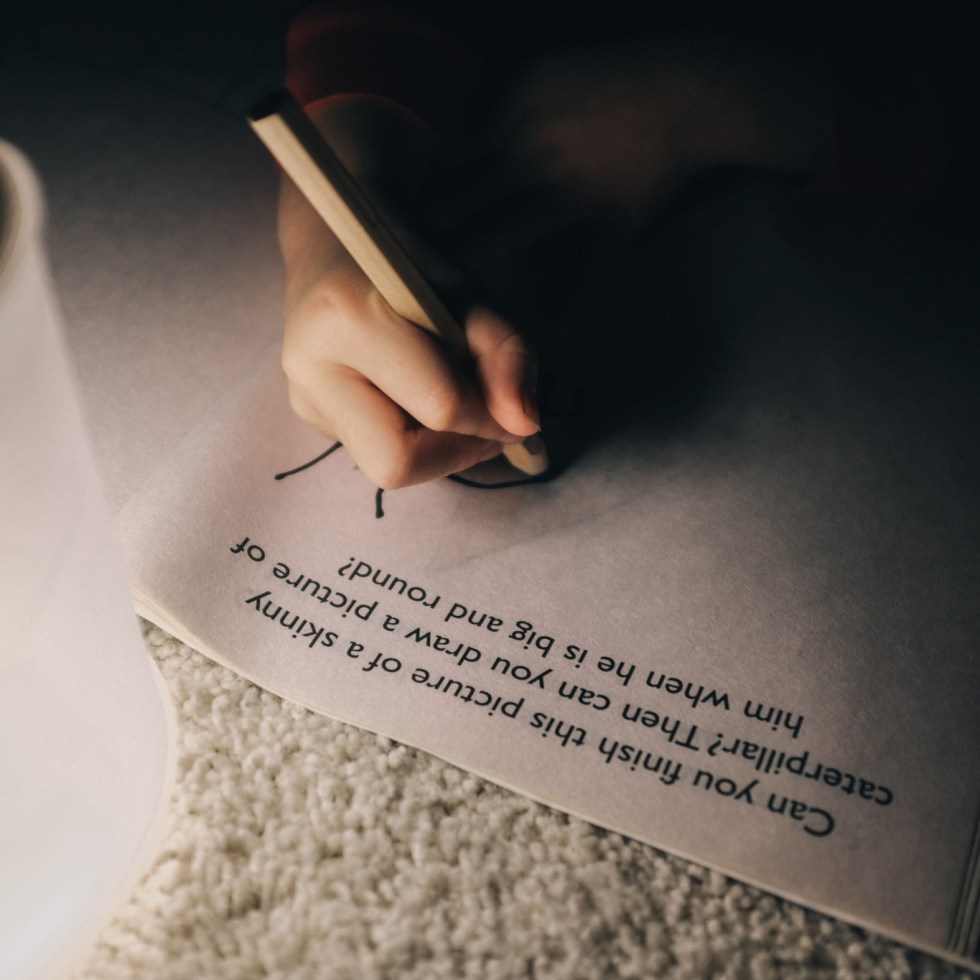 Can you finish this picture of a skinny
caterpillar? Then can you draw a picture of
him when he is big and round?